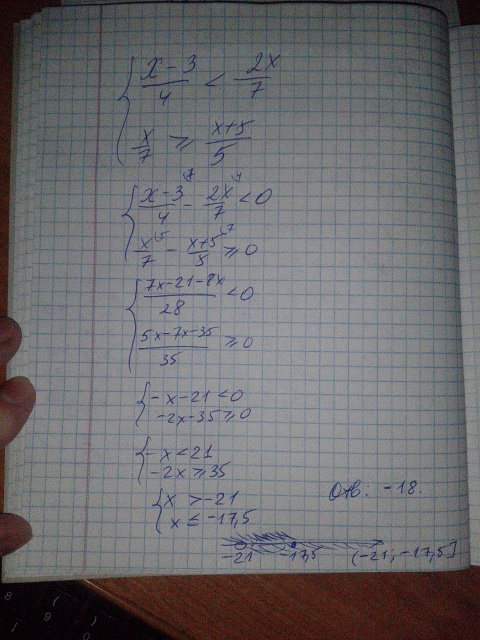 { (x-3)/4 < 2x/7
x/7 ≥ (x+5)/5
{ (x-3)/4 ⁷ - 2x/7 ⁴ < 0
x/7 ⁵ - (x+5)/5 ⁷ ≥ 0
{ (7x-21-8x)/28 < 0
(5x-7x-35)/35 ≥ 0
{ -x-21<0
-2x-35≥0
{ -x<21
-2x≥35
{ x >-21
x ≤ -17,5
Отв: -18.
-21 -17,5 (-21; -17,5]